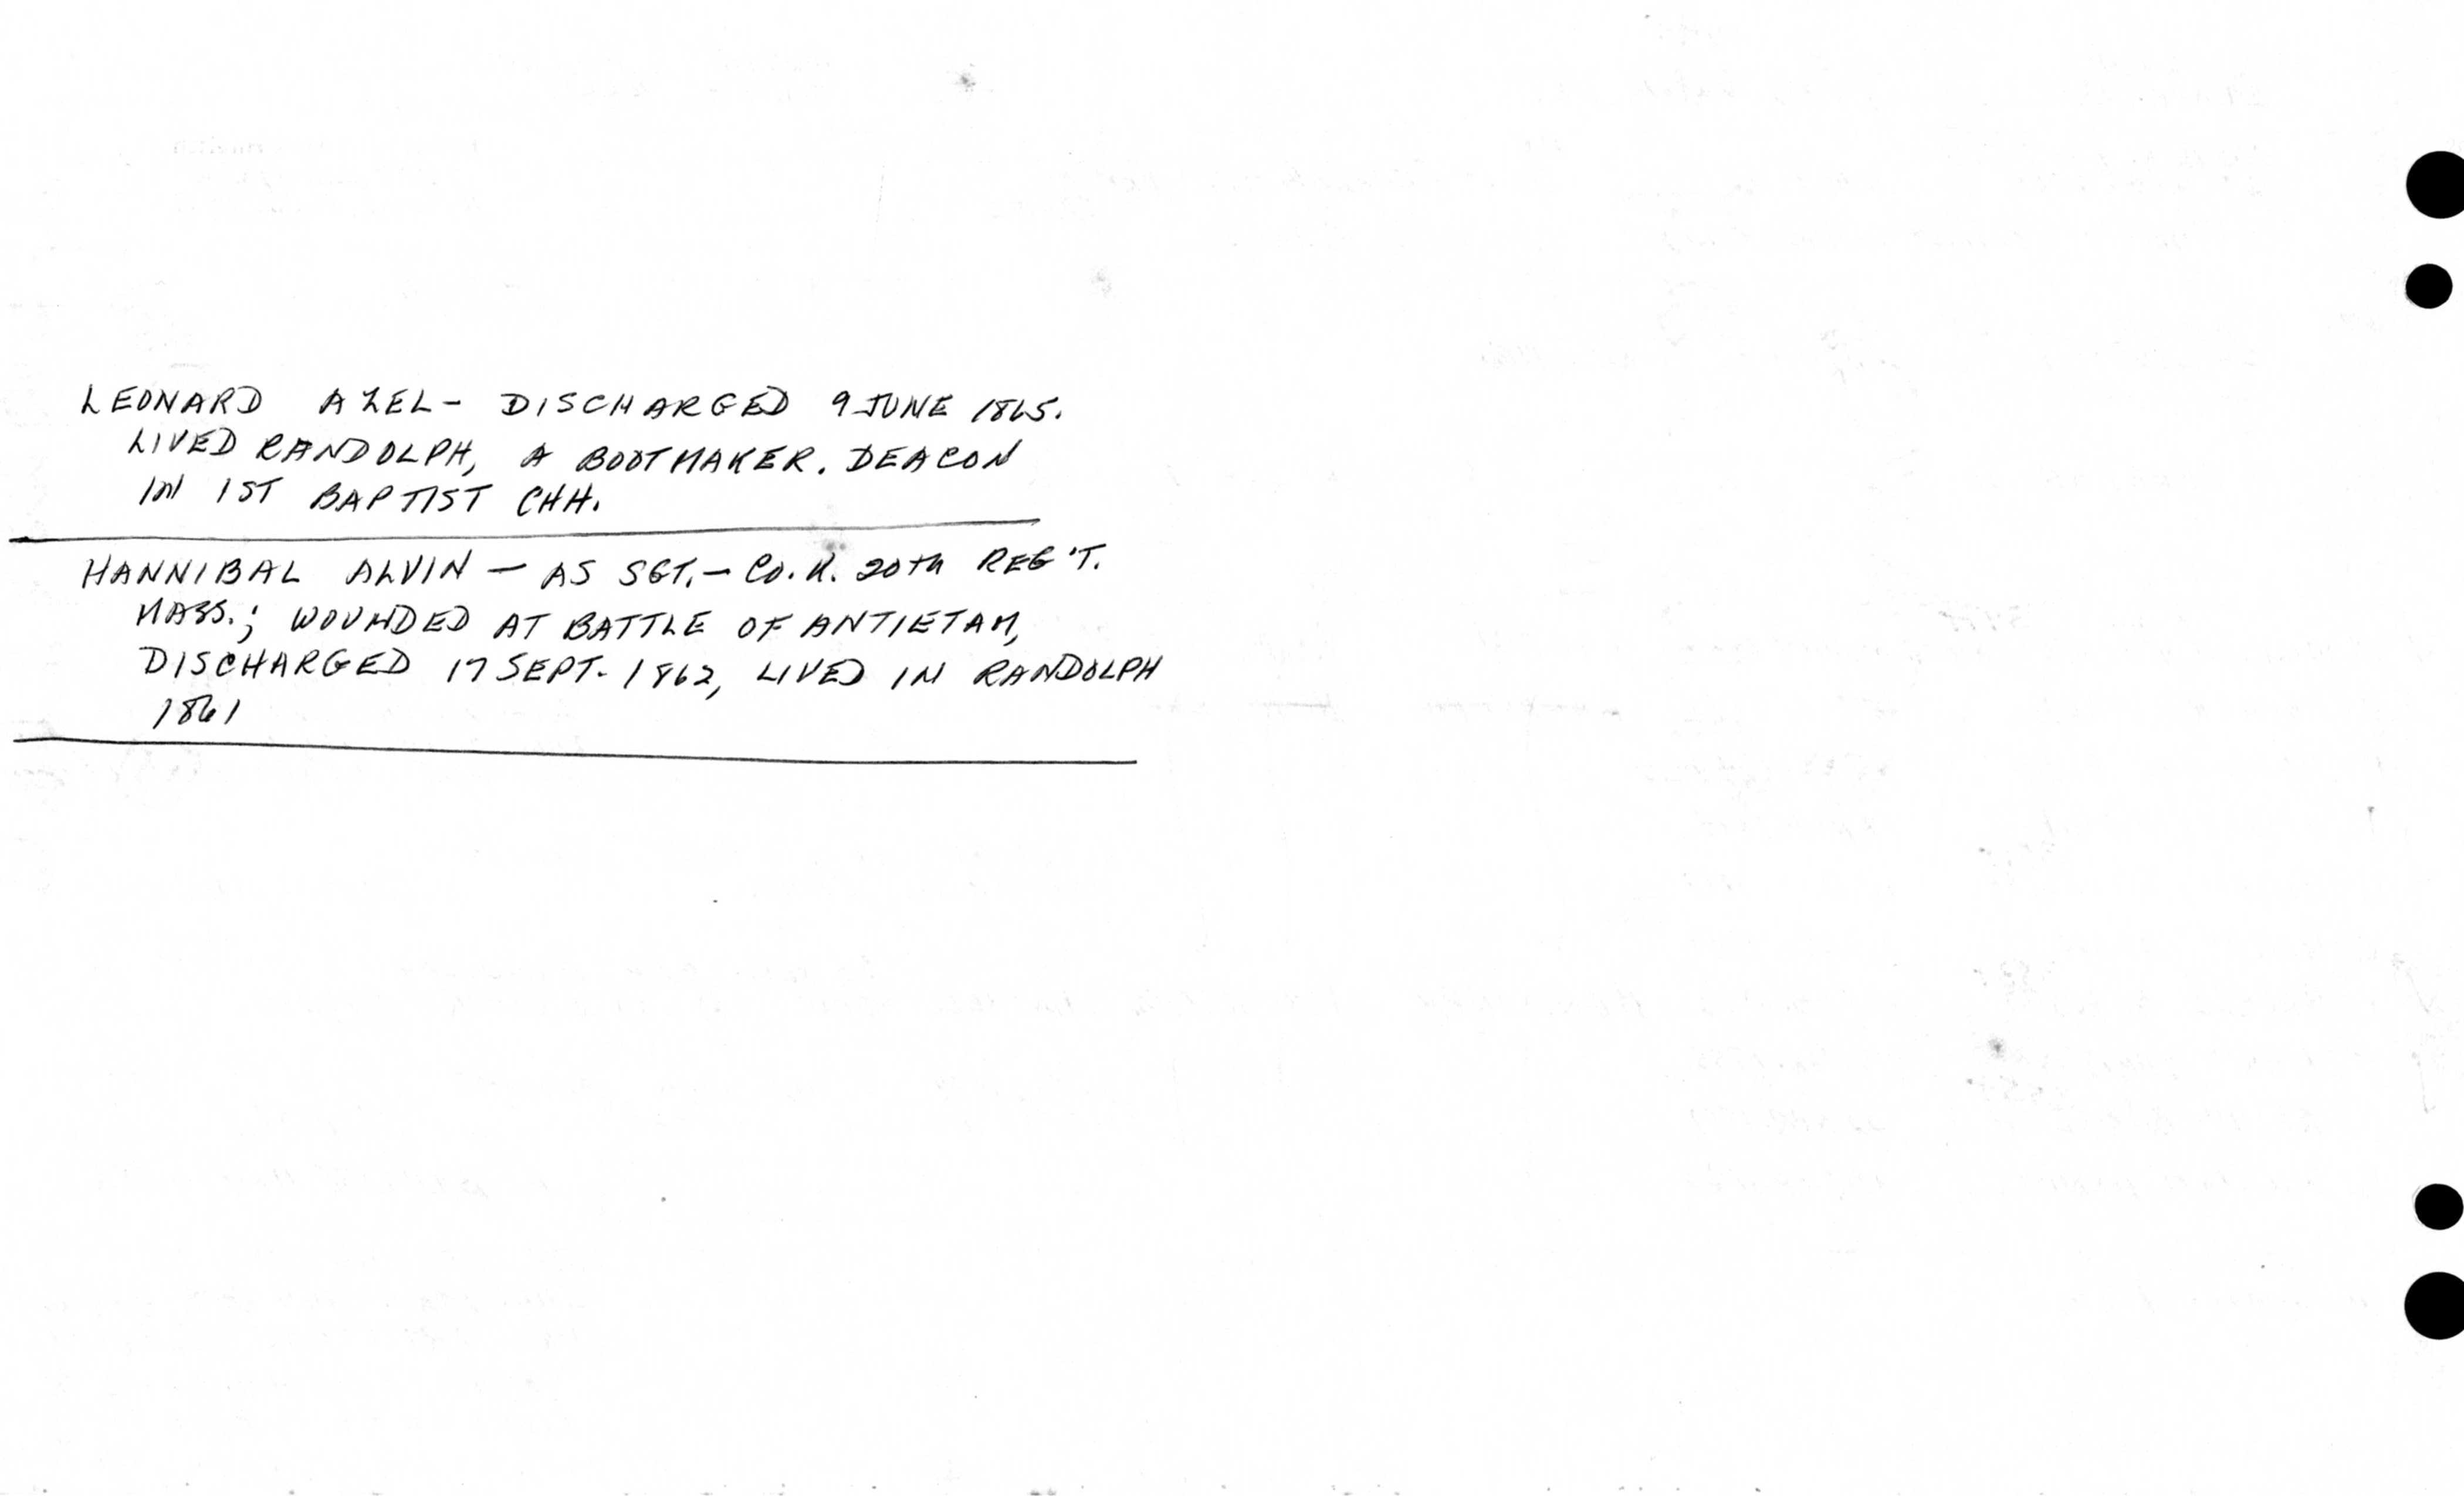 LEONARD AZEL - DISCHARGED 9 JUNE 1865.
LIVED RANDOLPH, A BOOTMAKER. DEACON
IN 1ST BAPTIST CHH.
HANNIBAL ALVIN - AS SGT. - CO. K. 20TH REG'T.
MASS.; WOUNDED AT BATTLE OF ANTIETAM,
DISCHARGED 17 SEPT. 1862, LIVED IN RANDOLPH
1861